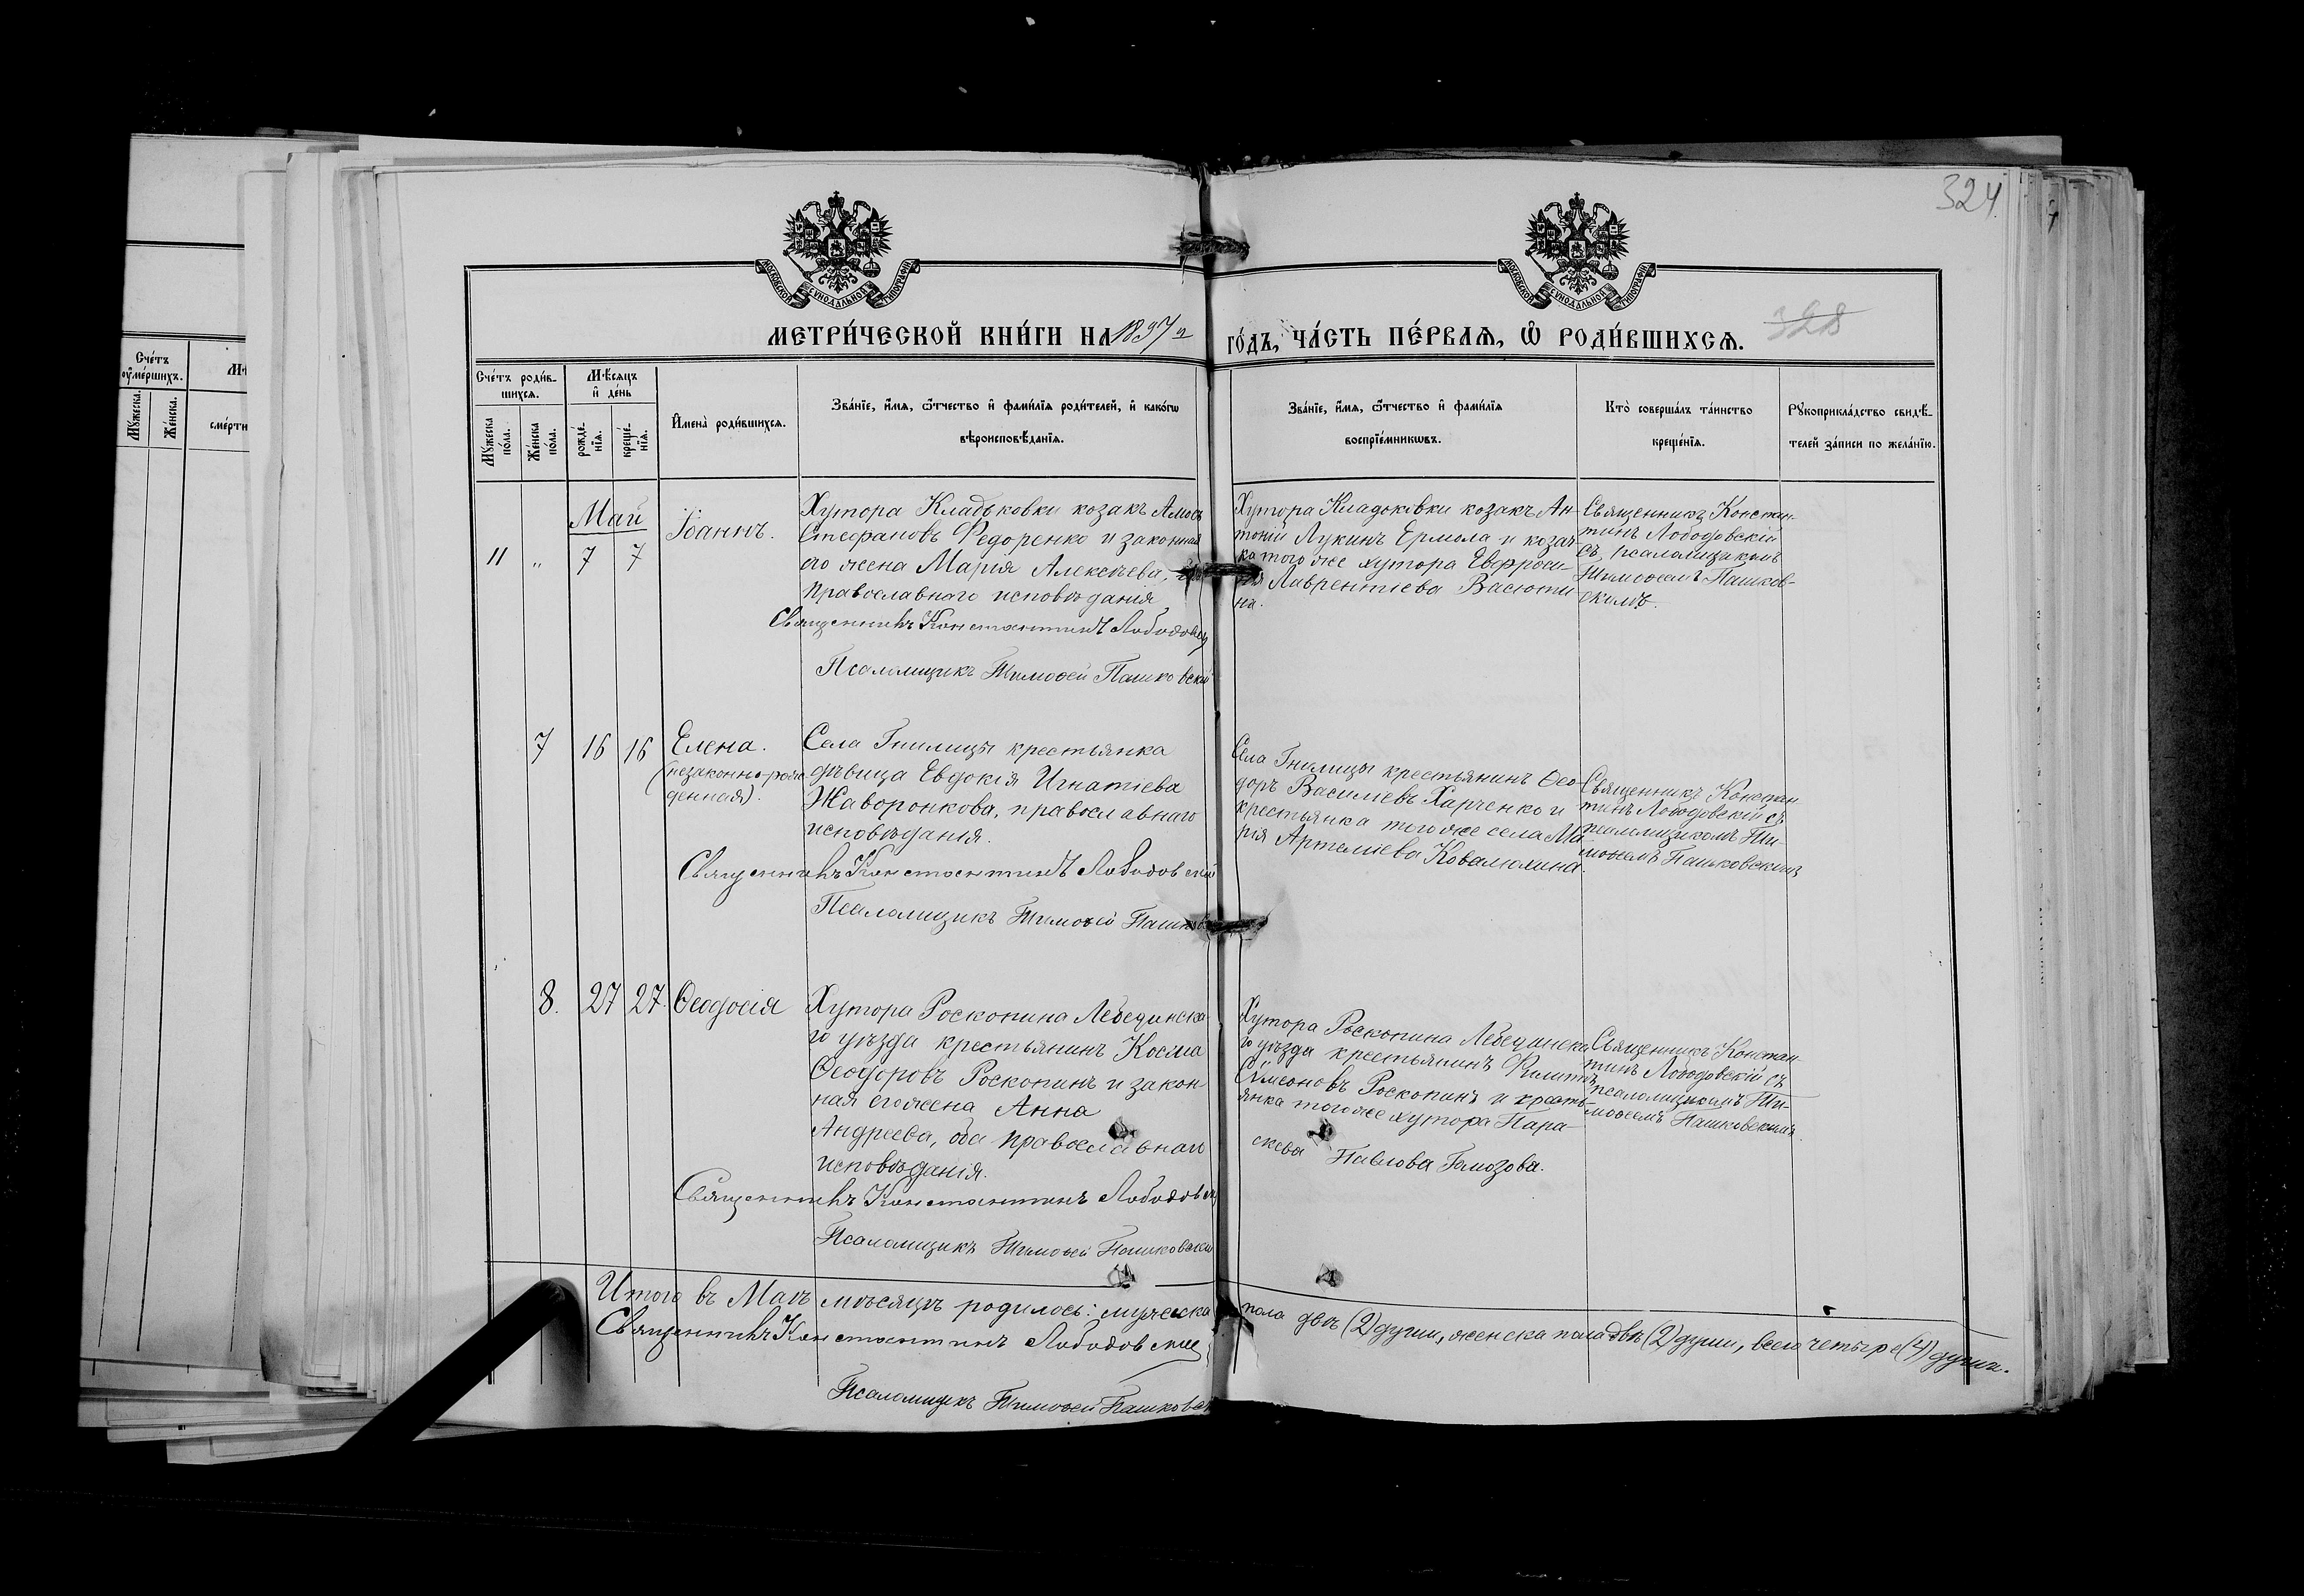 324.
328
МОСКОВСКОЙ СѴНОДАЛЬНОЙ ТИПОГРАФІИ
МОСКОВСКОЙ СѴНОДАЛЬНОЙ ТИПОГРАФІИ
МЕТРИ́ЧЕСКОЙ КНИ́ГИ НА 1897 г
ГО́ДЪ, ЧА́СТЬ ПЕ́РВАѦ, Ѡ РОДИ́ВШИХСѦ.
Сче́тъ
оуме́ршихъ.
Мꙋ́жеска.
Же́нска.
Сче́тъ роди́в-
шихсѧ.
Мꙋ́жеска
по́ла.
Же́нска
по́ла.
Мѣ́сѧцъ
и҆ де́нь
рожде́-
нїѧ.
креще́-
нїѧ.
И҆мена̀ роди́вшихсѧ.
Зва́нїе, и҆́мѧ, ѻ҆́тчество и҆ фами́лїѧ роди́телей, и҆ како́гѡ
вѣроисповѣ́данїѧ.
Зва́нїе, и҆́мѧ, ѻ҆́тчество и҆ фами́лїѧ
воспрїе́мникѡвъ.
Кто̀ соверша́лъ та́инство
креще́нїѧ.
Рꙋкоприкла́дство свидѣ́-
телей за́писи по жела́нїю.
Май
11 „ 7 7
Іоаннъ.
Хутора Кладьковки козакъ Амосъ
Стефановъ Федоренко и законная
его жена Марія Алексѣева,
православнаго исповѣданія
Священникъ Константинъ Лободовск
Псаломщикъ Тимоѳей Пашковскій
Хутора Кладоковки козакъ Ан-
тоній Лукинъ Ермола и козач-
ка того же хутора Евфроси-
нія Лаврентіева Васюти-
на.
Священникъ Констан-
тинъ Лободовскій
съ псаломщикомъ
Тимоѳеемъ Пашков-
скимъ.
7 16 16
Елена.
(незаконно-рож-
денная).
Села Гнилицы крестьянка
дѣвица Евдокія Игнатіева
Жаворонкова, православнаго
исповѣданія.
Священникъ Константинъ Лободовскій
Псаломщикъ Тимоѳей Пашков
Села Гнилицы крестьянинъ Ѳео-
доръ Василіевъ Харченко и
крестьянка того же села Ма-
рія Артеміева Ковалкина.
Священникъ Констан-
тинъ Лободовскій съ
псаломщикомъ Ти-
моѳеемъ Пашковскимъ
8. 27 27.
Ѳеодосія
Хутора Роскопина Лебединска-
го уѣзда крестьянинъ Косма
Ѳеодоровъ Роскопинъ и закон
ная его жена Анна
Андреева, оба православнаго
исповѣданія.
Священникъ Константинъ Лободовск
Псаломщикъ Тимоѳей Пашковскій
Хутора Роскопина Лебединска-
го уѣзда крестьянинъ Филиппъ
Симеоновъ Роскопинъ и кресть-
янка того же хутора Пара-
скева Павлова Гамозова.
Священникъ Констан-
тинъ Лободовскій съ
псаломщикомъ Ти-
моѳеемъ Пашковскимъ.
Итого въ Маѣ мѣсяцѣ родилось: мужеска пола двѣ (2) души, женска пола двѣ (2) души, всего четыре (4) души.
Священникъ Константинъ Лободовскій
Псаломщикъ Тимоѳей Пашковск